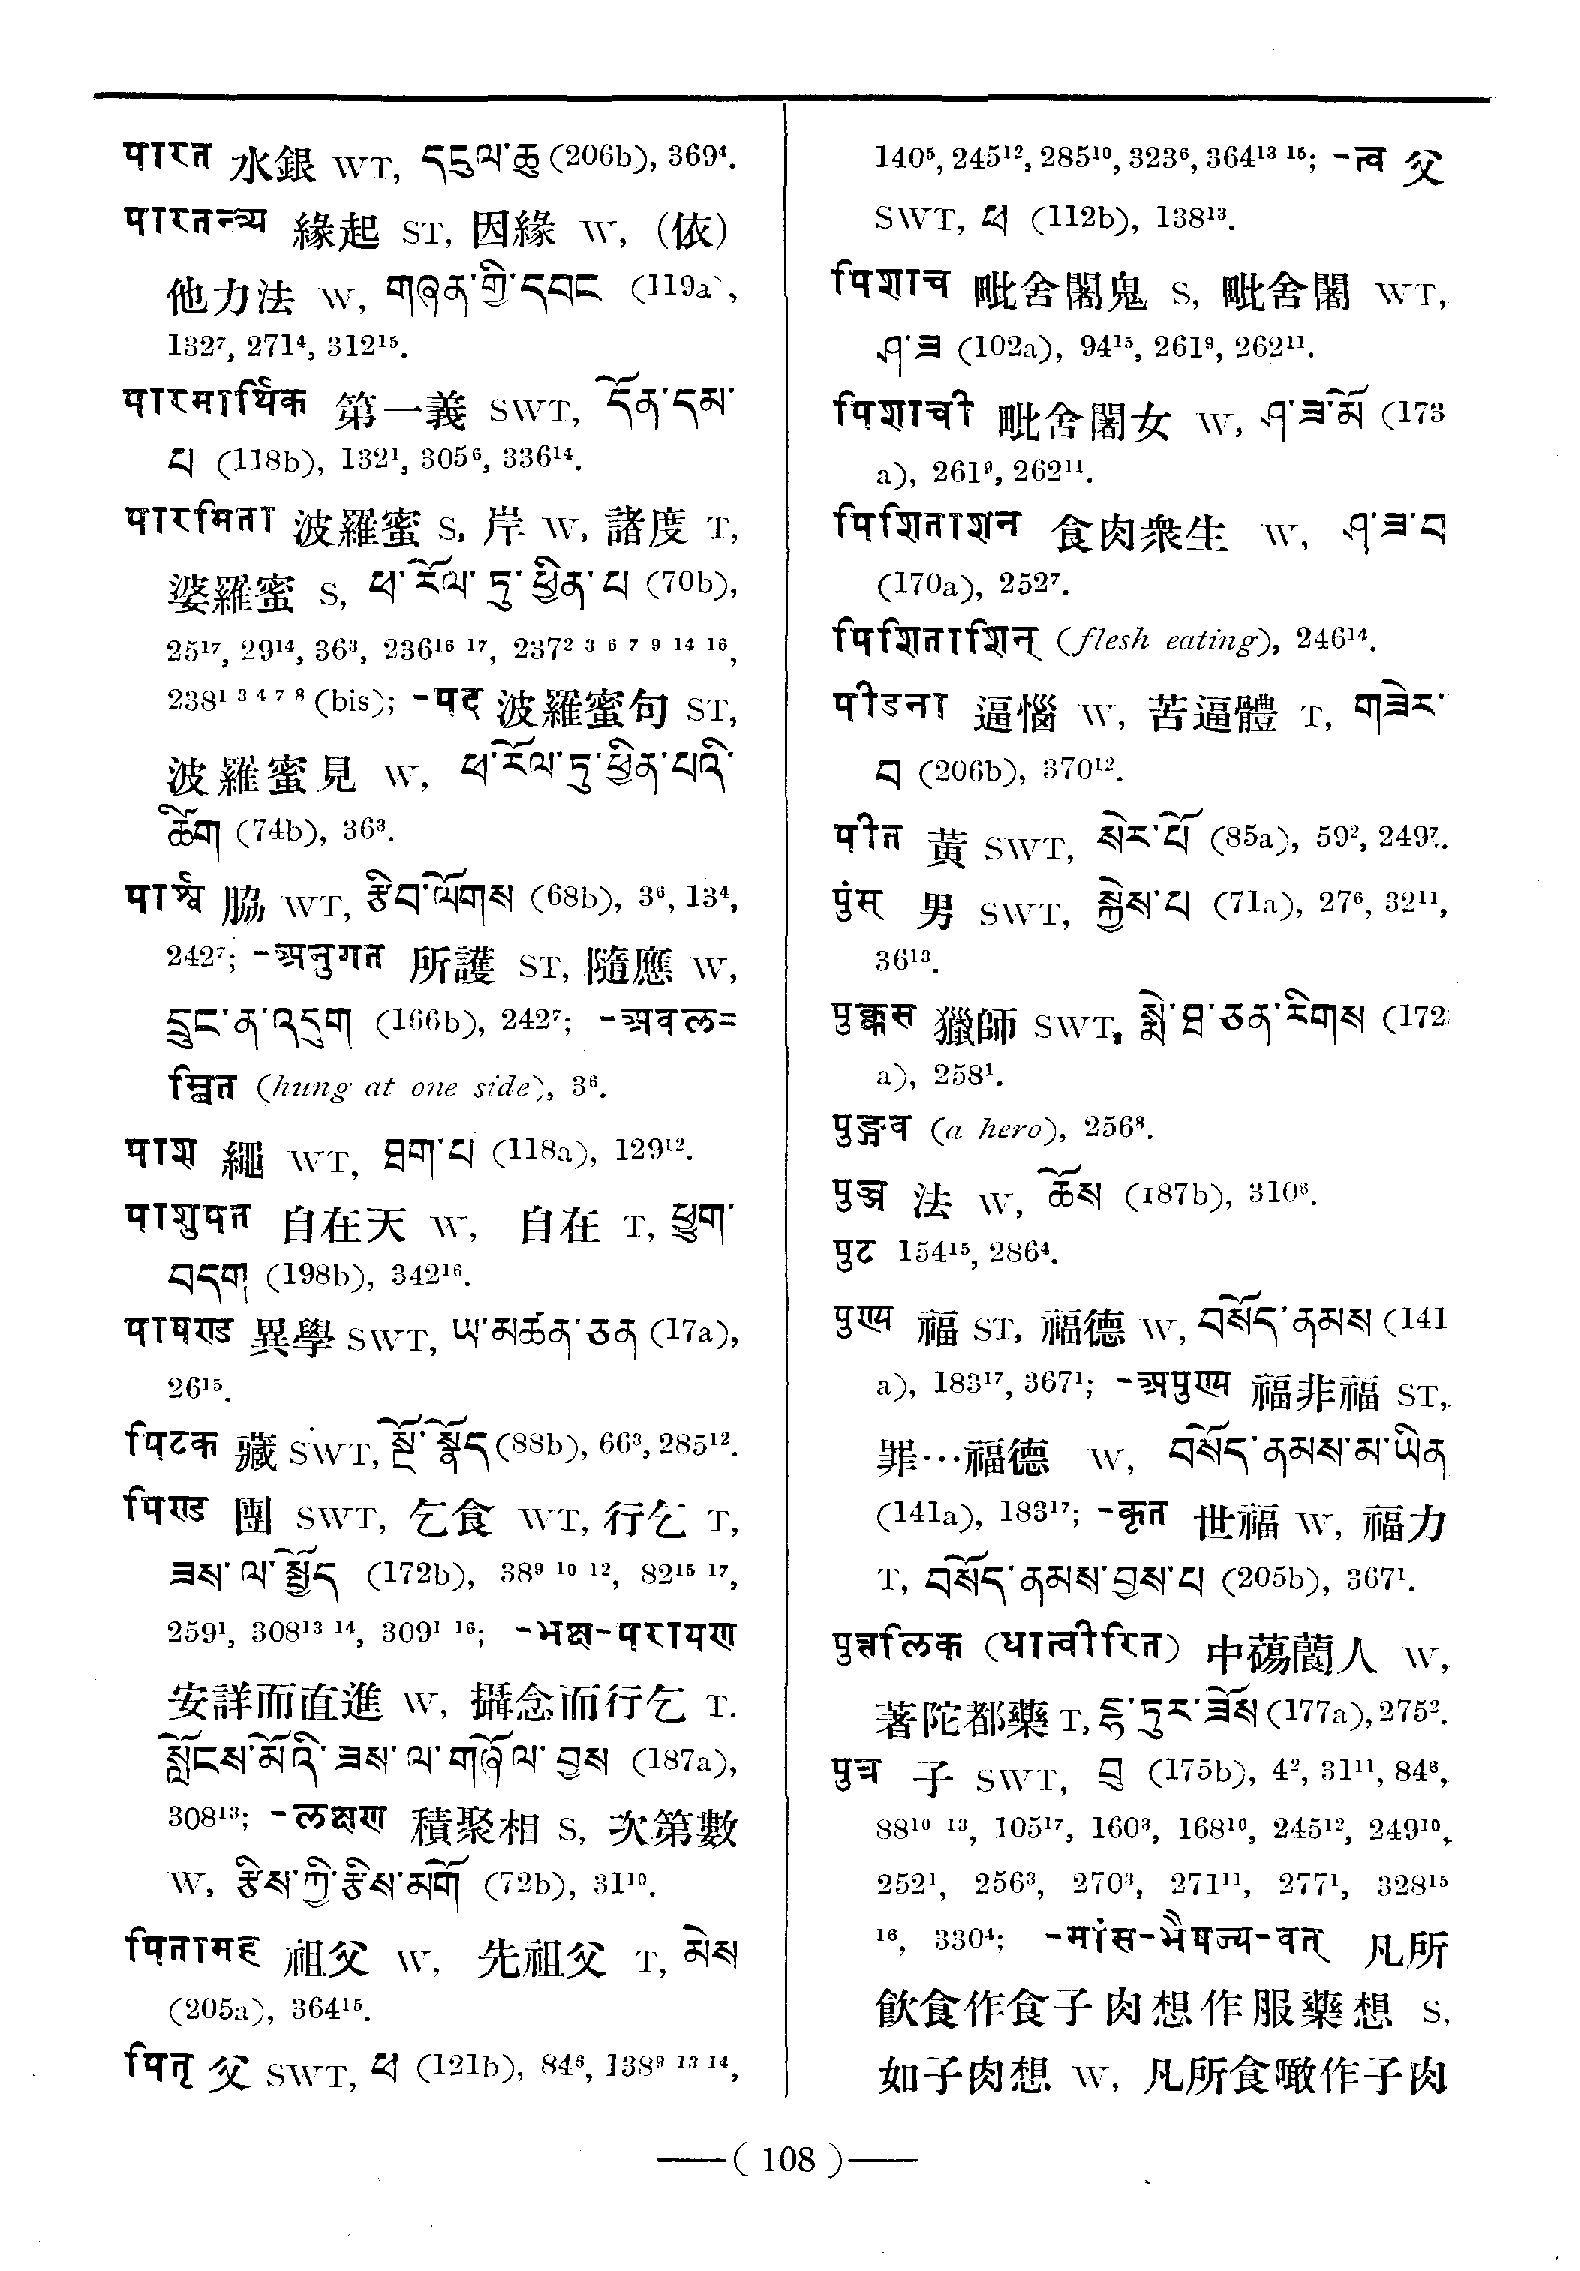 पारत 水銀 WT, དངུལ་ཆུ (206b), 369⁴.
पारतन्त्र्य 緣起 ST, 因緣 W, (依)
他力法 W, གཞན་གྱི་དབང (119a),
132⁷, 271⁴, 312¹⁵.
पारमार्थिक 第一義 SWT, དོན་དམ་
པ (118b), 132¹, 305⁶, 336¹⁴.
पारमिता 波羅蜜 S, 岸 W, 諸度 T,
婆羅蜜 S, ཕ་རོལ་ཏུ་ཕྱིན་པ (70b),
25¹⁷, 29¹⁴, 36³, 236¹⁶ ¹⁷, 237² ³ ⁶ ⁷ ⁹ ¹⁴ ¹⁶,
238¹ ³ ⁴ ⁷ ⁸ (bis); -पद 波羅蜜句 ST,
波羅蜜見 W, ཕ་རོལ་ཏུ་ཕྱིན་པའི་
ཚོག (74b), 36³.
पार्श्व 脇 WT, རྩིབ་ལོགས (68b), 3⁶, 13⁴,
242⁷; -अनुगत 所護 ST, 隨應 W,
དྲུང་ན་འདུག (166b), 242⁷; -अवल=
म्बित (hung at one side), 3⁶.
पाश 繩 WT, ཐག་པ (118a), 129¹².
पाशुपत 自在天 W, 自在 T, ཕྱུག་
བདག (198b), 342¹⁶.
पाषण्ड 異學 SWT, ཡ་མཚན་ཅན (17a),
26¹⁵.
पिटक 藏 SWT, སྡེ་སྣོད (88b), 66³, 285¹².
पिण्ड 團 SWT, 乞食 WT, 行乞 T,
ཟས་ལ་སྤྱོད (172b), 38⁹ ¹⁰ ¹², 82¹⁵ ¹⁷,
259¹, 308¹³ ¹⁴, 309¹ ¹⁶; -भक्ष-परायण
安詳而直進 W, 攝念而行乞 T.
སློངས་མོའི་ཟས་ལ་གཞོལ་བྱས (187a),
308¹³; -लक्षण 積聚相 S, 次第數
W, རྩིས་ཀྱི་རྩིས་མགོ (72b), 31¹⁰.
पितामह 祖父 W, 先祖父 T, མེས
(205a), 364¹⁵.
पितृ 父 SWT, ཕ (121b), 84⁶, 138⁹ ¹³ ¹⁴,
140⁵, 245¹², 285¹⁰, 323⁶, 364¹³ ¹⁵; -त्व 父
SWT, ཕ (112b), 138¹³.
पिशाच 毗舍闍鬼 S, 毗舍闍 WT,
ཤ་ཟ (102a), 94¹⁵, 261⁹, 262¹¹.
पिशाची 毗舍闍女 W, ཤ་ཟ་མོ (173
a), 261⁹, 262¹¹.
पिशिताशन 食肉衆生 W, ཤ་ཟ་བ
(170a), 252⁷.
पिशिताशिन् (flesh eating), 246¹⁴.
पीडना 逼惱 W, 苦逼體 T, གཟེར་
བ (206b), 370¹².
पीत 黃 SWT, སེར་པོ (85a), 59², 249⁷.
पुंस् 男 SWT, སྐྱེས་པ (71a), 27⁶, 32¹¹,
36¹³.
पुक्कस 獵師 SWT, སྨེ་ཐ་ཅན་རིགས (172
a), 258¹.
पुङ्गव (a hero), 256⁸.
पुञ्ज 法 W, ཆོས (187b), 310⁶.
पुट 154¹⁵, 286⁴.
पुण्य 福 ST, 福德 W, བསོད་ནམས (141
a), 183¹⁷, 367¹; -अपुण्य 福非福 ST,
罪…福德 W, བསོད་ནམས་མ་ཡིན
(141a), 183¹⁷; -कृत 世福 W, 福力
T, བསོད་ནམས་བྱས་པ (205b), 367¹.
पुत्तलिक (धात्वीरित) 中蕩蘭人 W,
著陀都藥 T, དྷ་ཏུར་ཟོས (177a), 275².
पुत्र 子 SWT, བུ (175b), 4², 31¹¹, 84⁶,
88¹⁰ ¹³, 105¹⁷, 160³, 168¹⁰, 245¹², 249¹⁰,
252¹, 256³, 270³, 271¹¹, 277¹, 328¹⁵
¹⁶, 330⁴; -मांस-भैषज्य-वत् 凡所
飮食作食子肉想作服藥想 S,
如子肉想 W, 凡所食噉作子肉
(108)